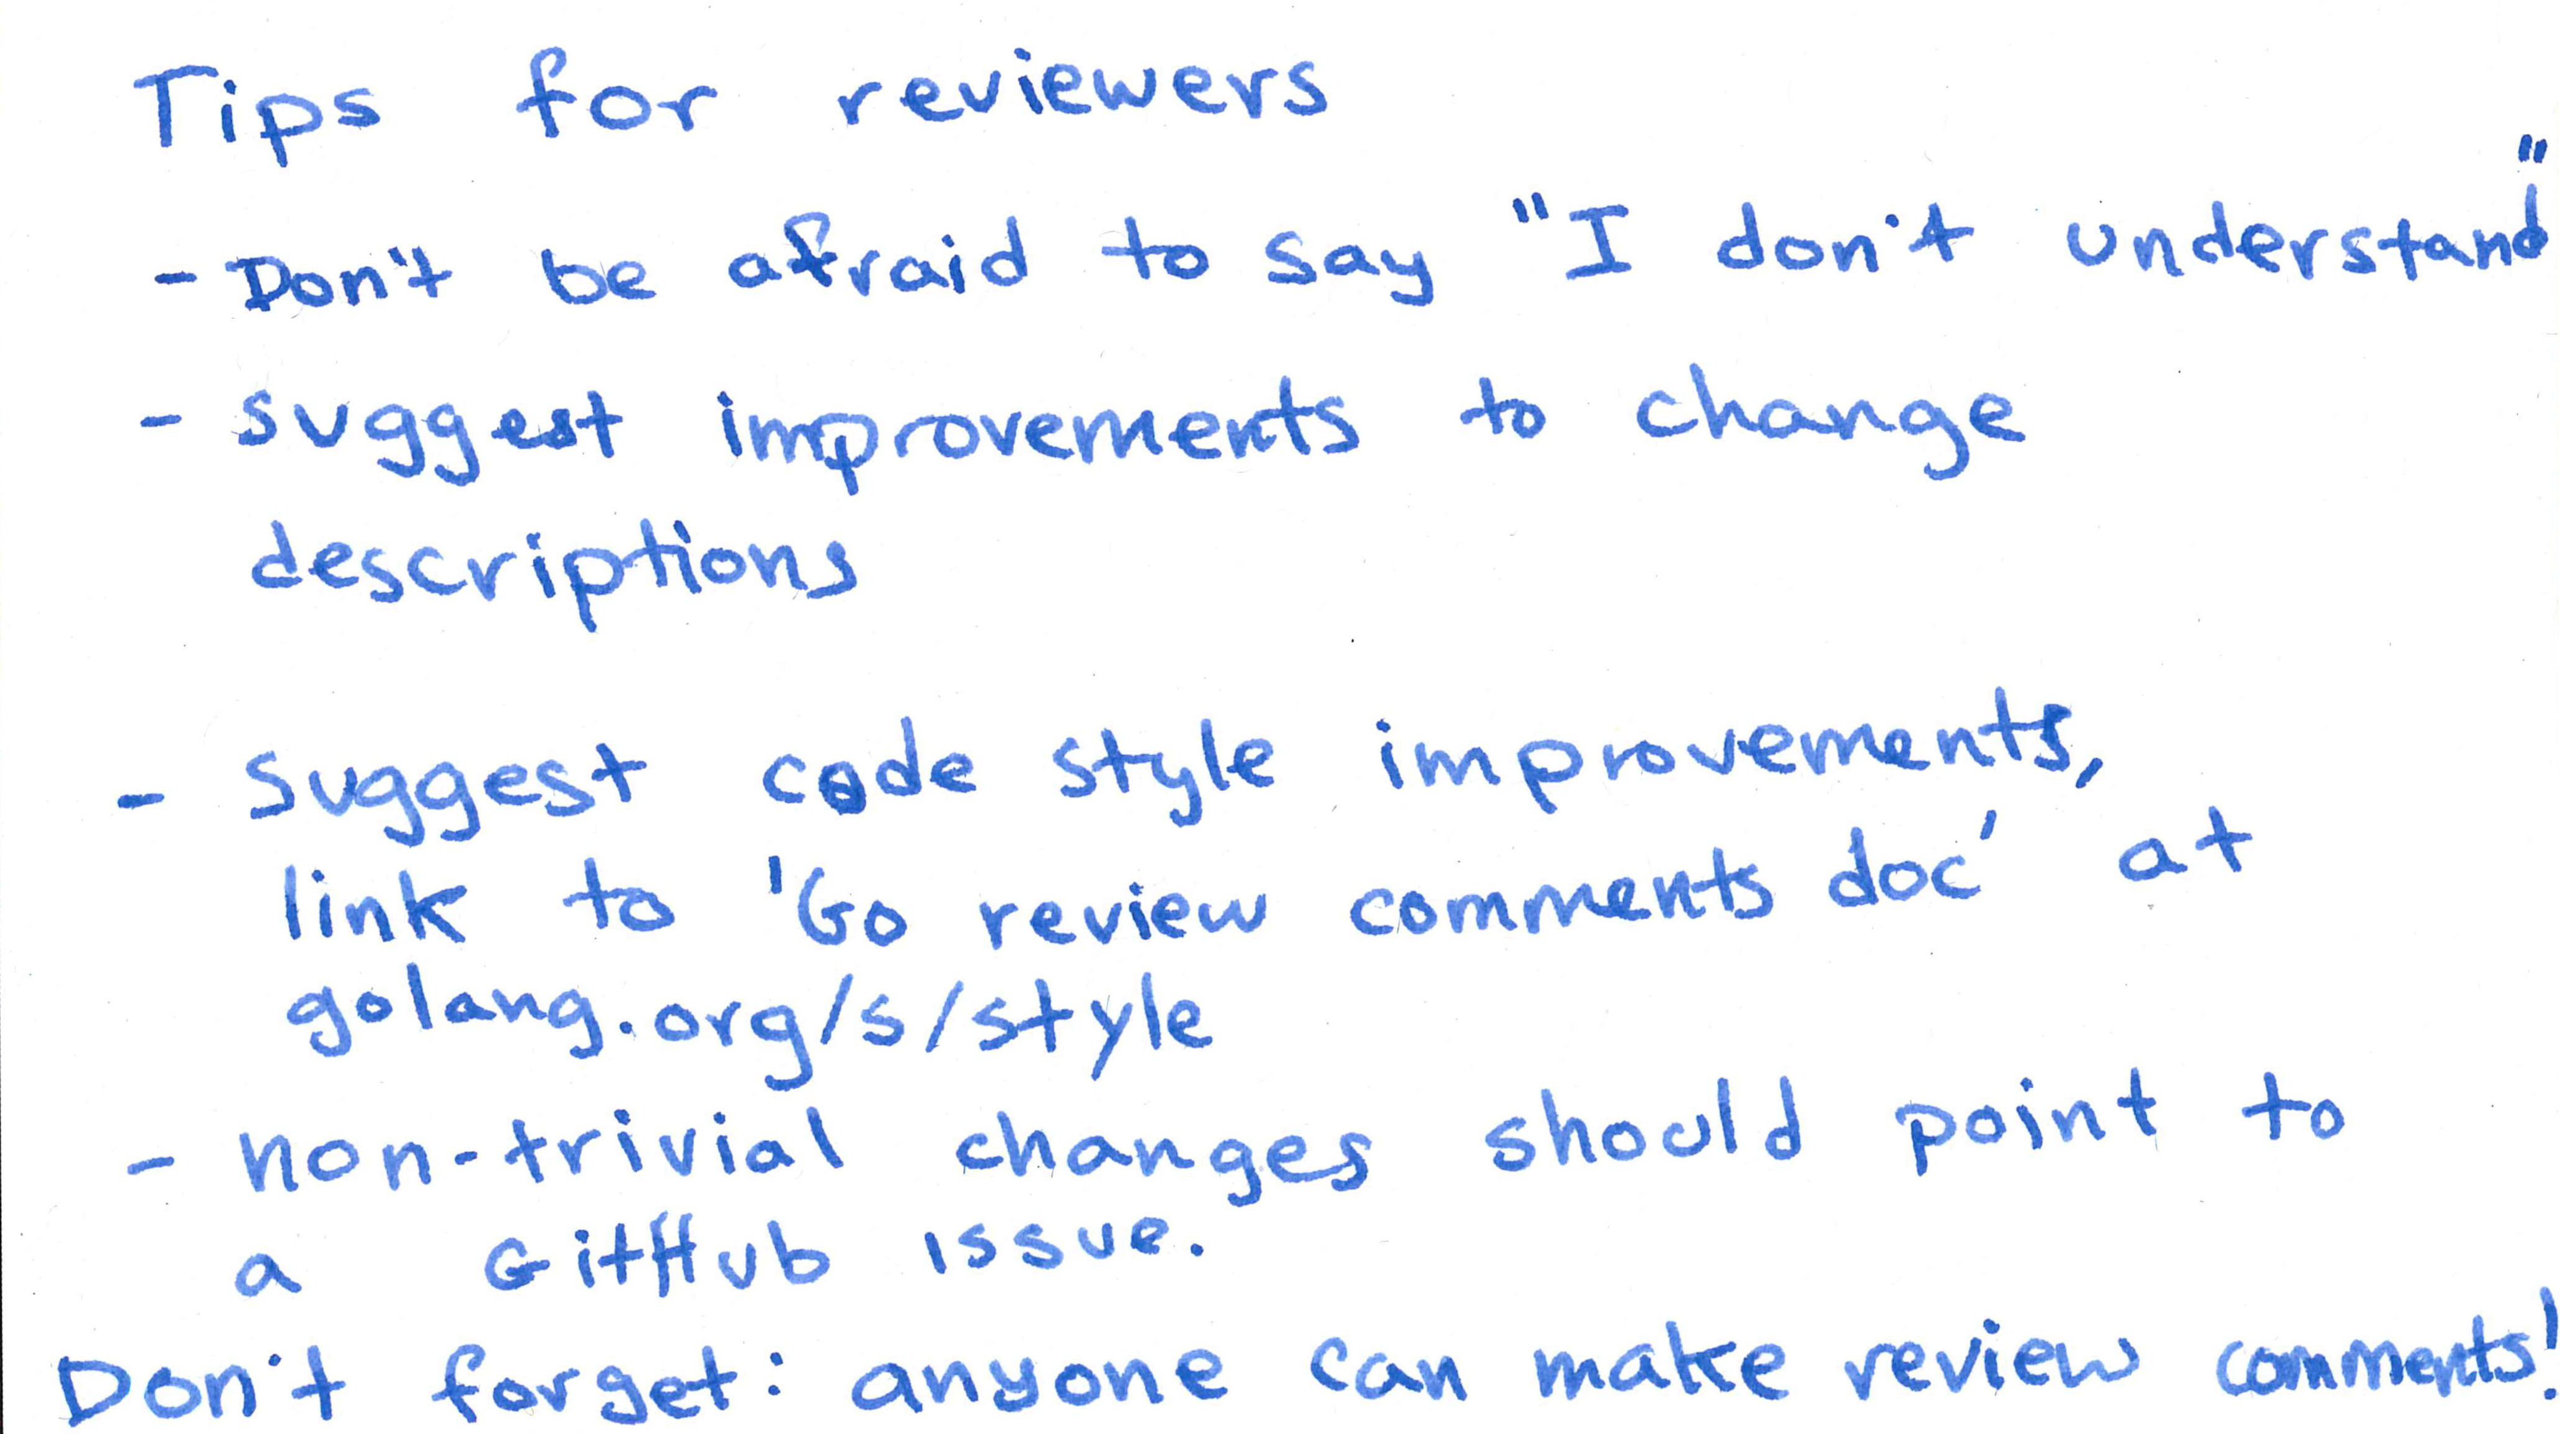 Tips for reviewers
- Don't be afraid to say "I don't understand"
- suggest improvements to change
descriptions
- suggest code style improvements,
link to 'Go review comments doc' at
golang.org/s/style
- non-trivial changes should point to
a GitHub issue.
Don't forget: anyone can make review comments!